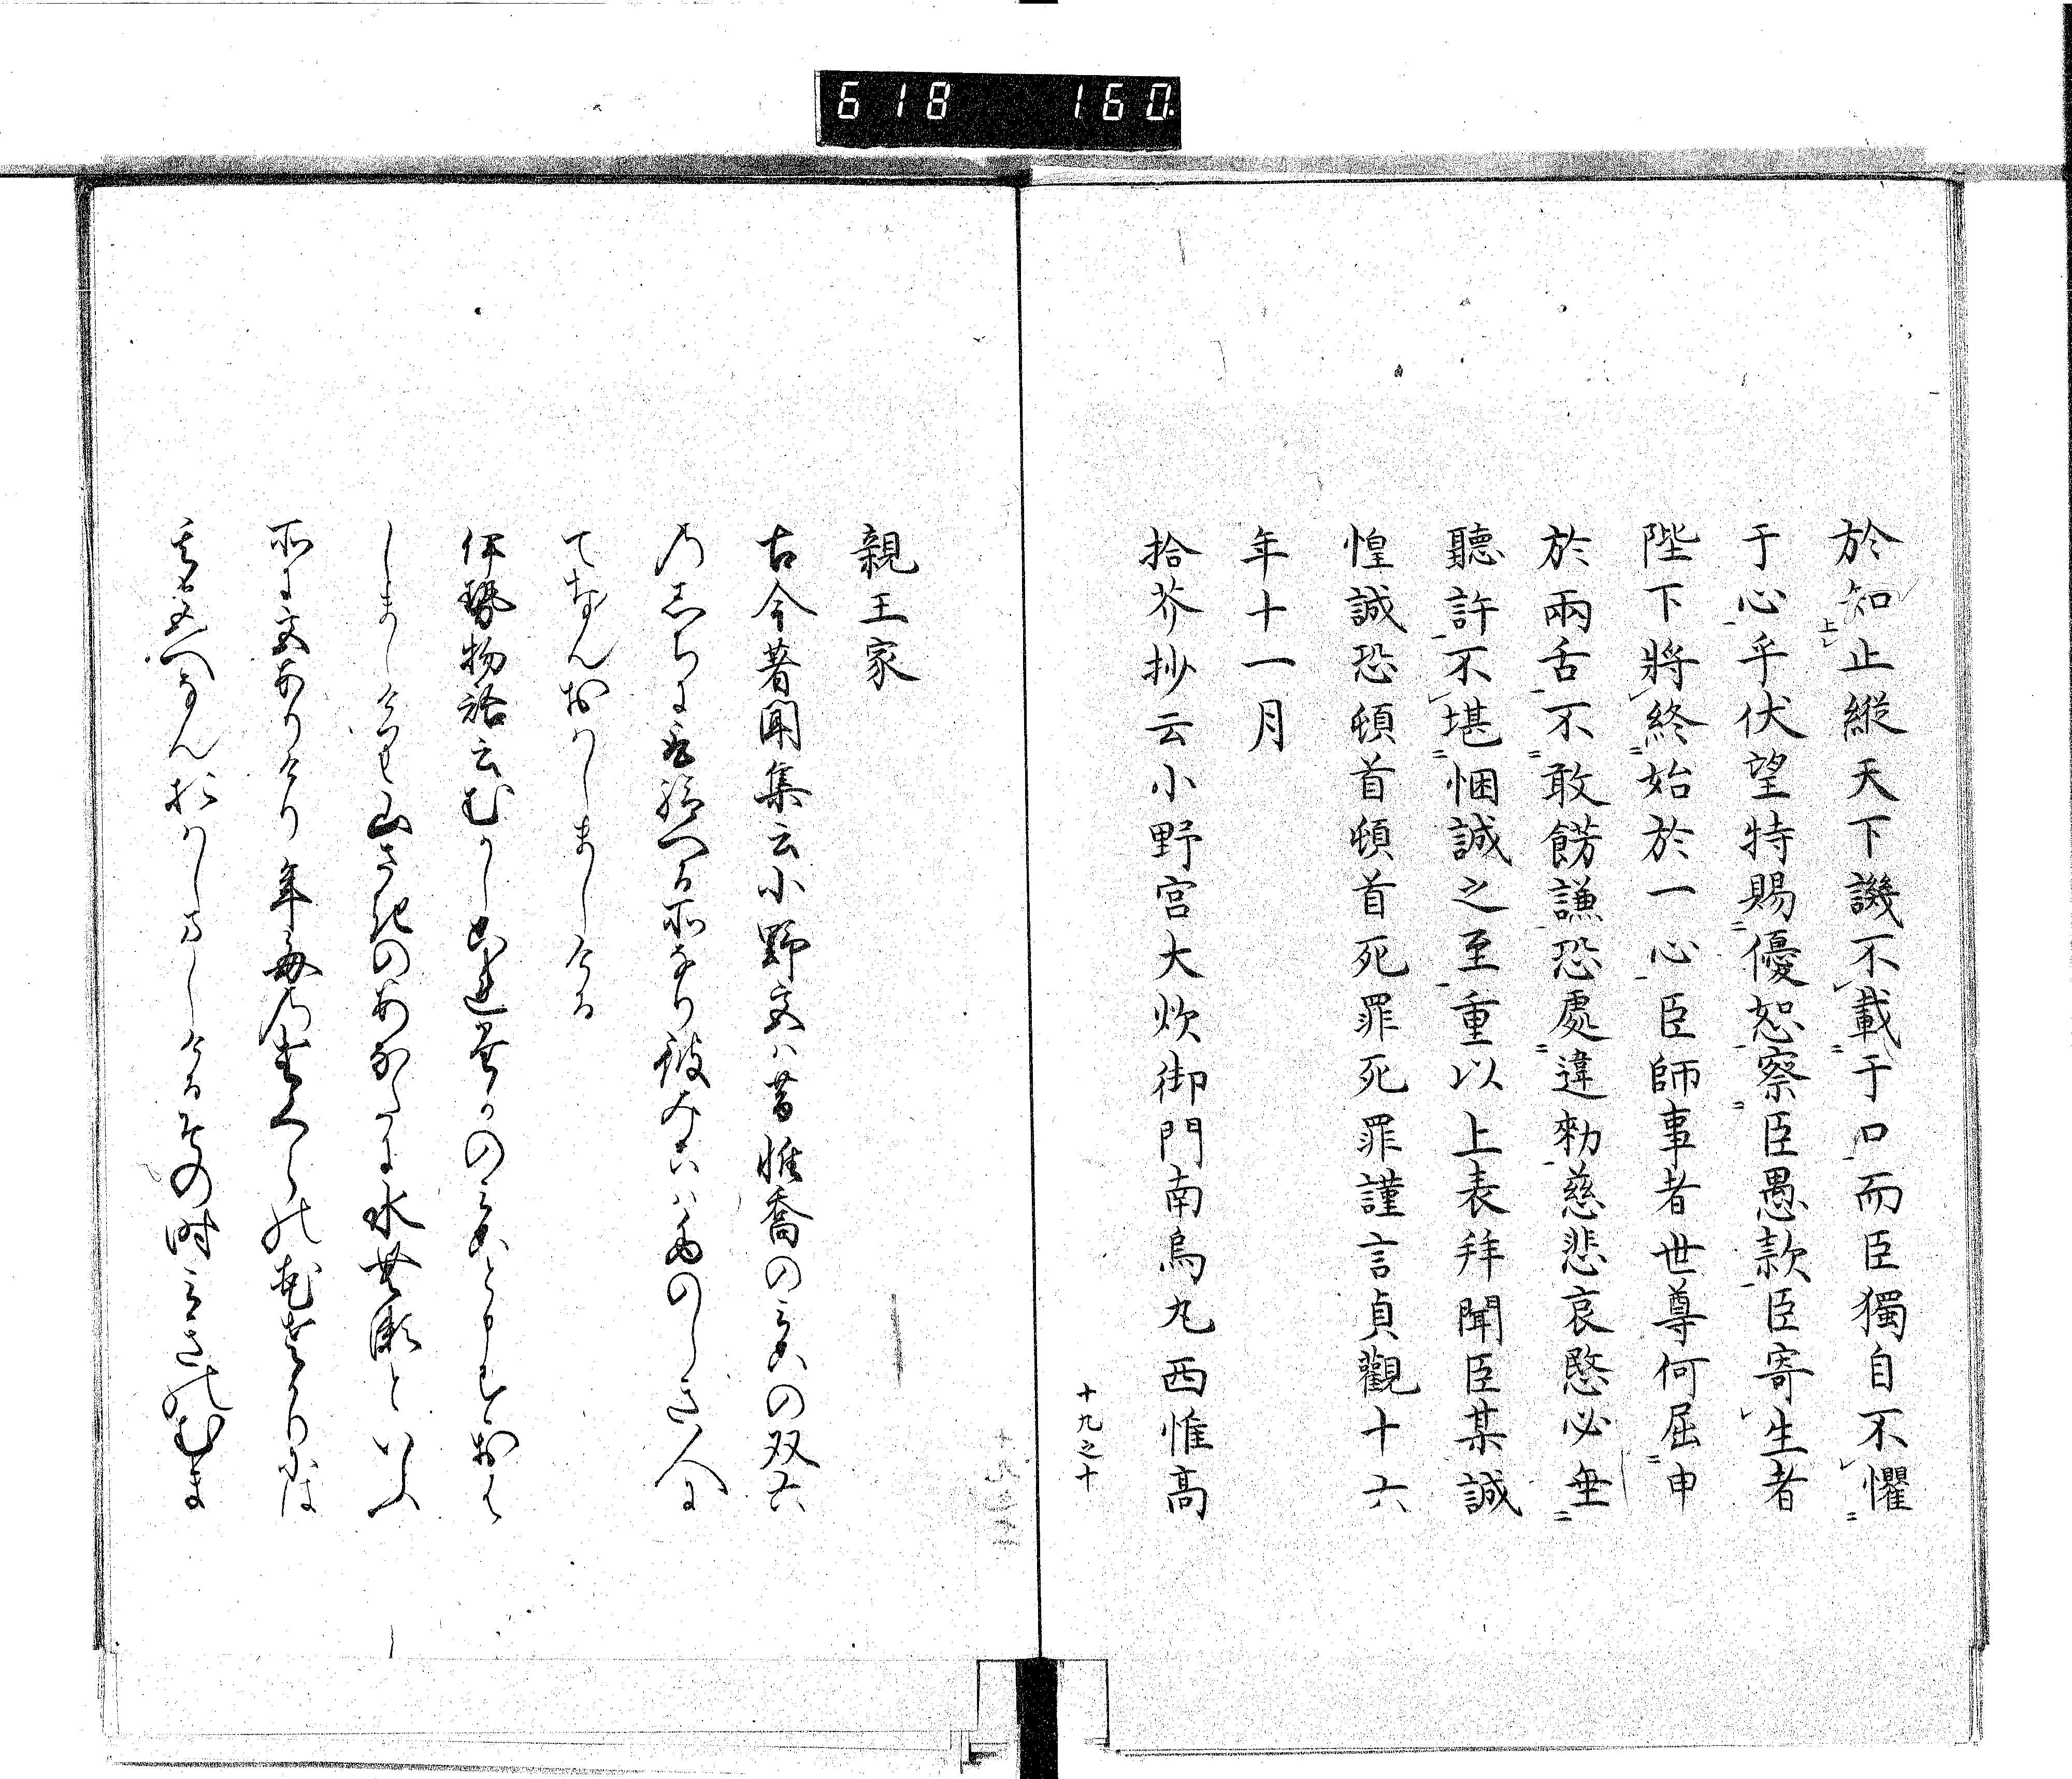 618 160
於知止縦天下譏不載于口而臣獨自不懼
于心乎伏望特賜優恕察臣愚款臣寄生者
陛下將終始於一心臣師事者世尊何屈申
於兩舌不敢餝謙恐處違勅慈悲哀愍必垂
聽許不堪悃誠之至重以上表拜聞臣某誠
惶誠恐頓首頓首死罪死罪謹言貞觀十六
年十一月
拾芥抄云小野宮大炊御門南烏丸西惟高
十九之十
親王家
古今著聞集云小野宮ハ昔惟喬のみこの双六
のしちに取給へる所なり彼みこハ多のしき人に
てなんおハしましける
伊勢物語云むかしこれたかのみこと申すみこおは
しましけり山さきのあなたに水無瀬といふ
所に宮ありけり年毎のさくらの花さかりには
其宮へなんおハしましけるその時みきのむま